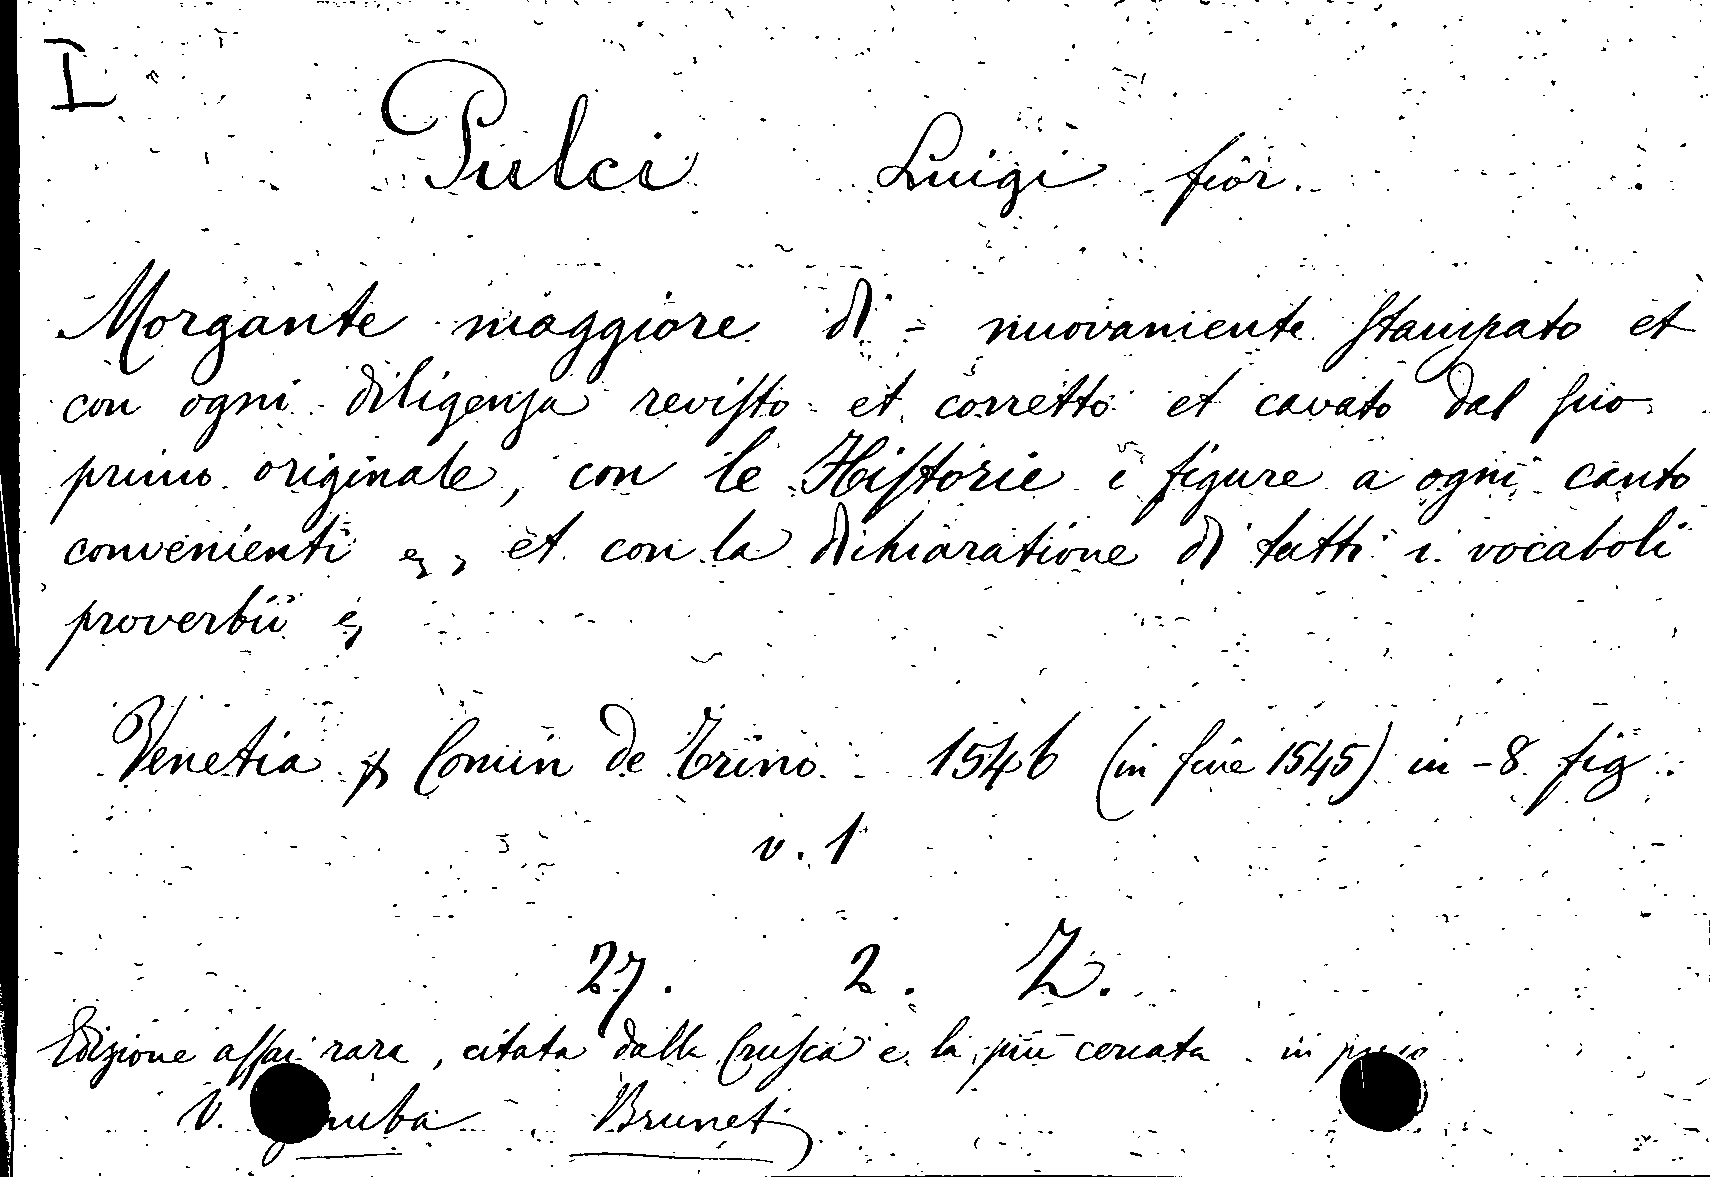 I
Pulci Luigi fior.
Morgante maggiore di - nuovamente stampato et
con ogni diligenza revisto et corretto et cavato dal suo
primo originale, con le Historie e figure a ogni canto
convenienti &, et con la dichiaratione di tutti i vocaboli
proverbii &
Venetia p Comin de Trino 1546 (in fine 1545) in-8 fig.
v. 1
27. 2. Z.
Edizione assai rara, citata dalla Crusca e la più cercata in
V. Brunet